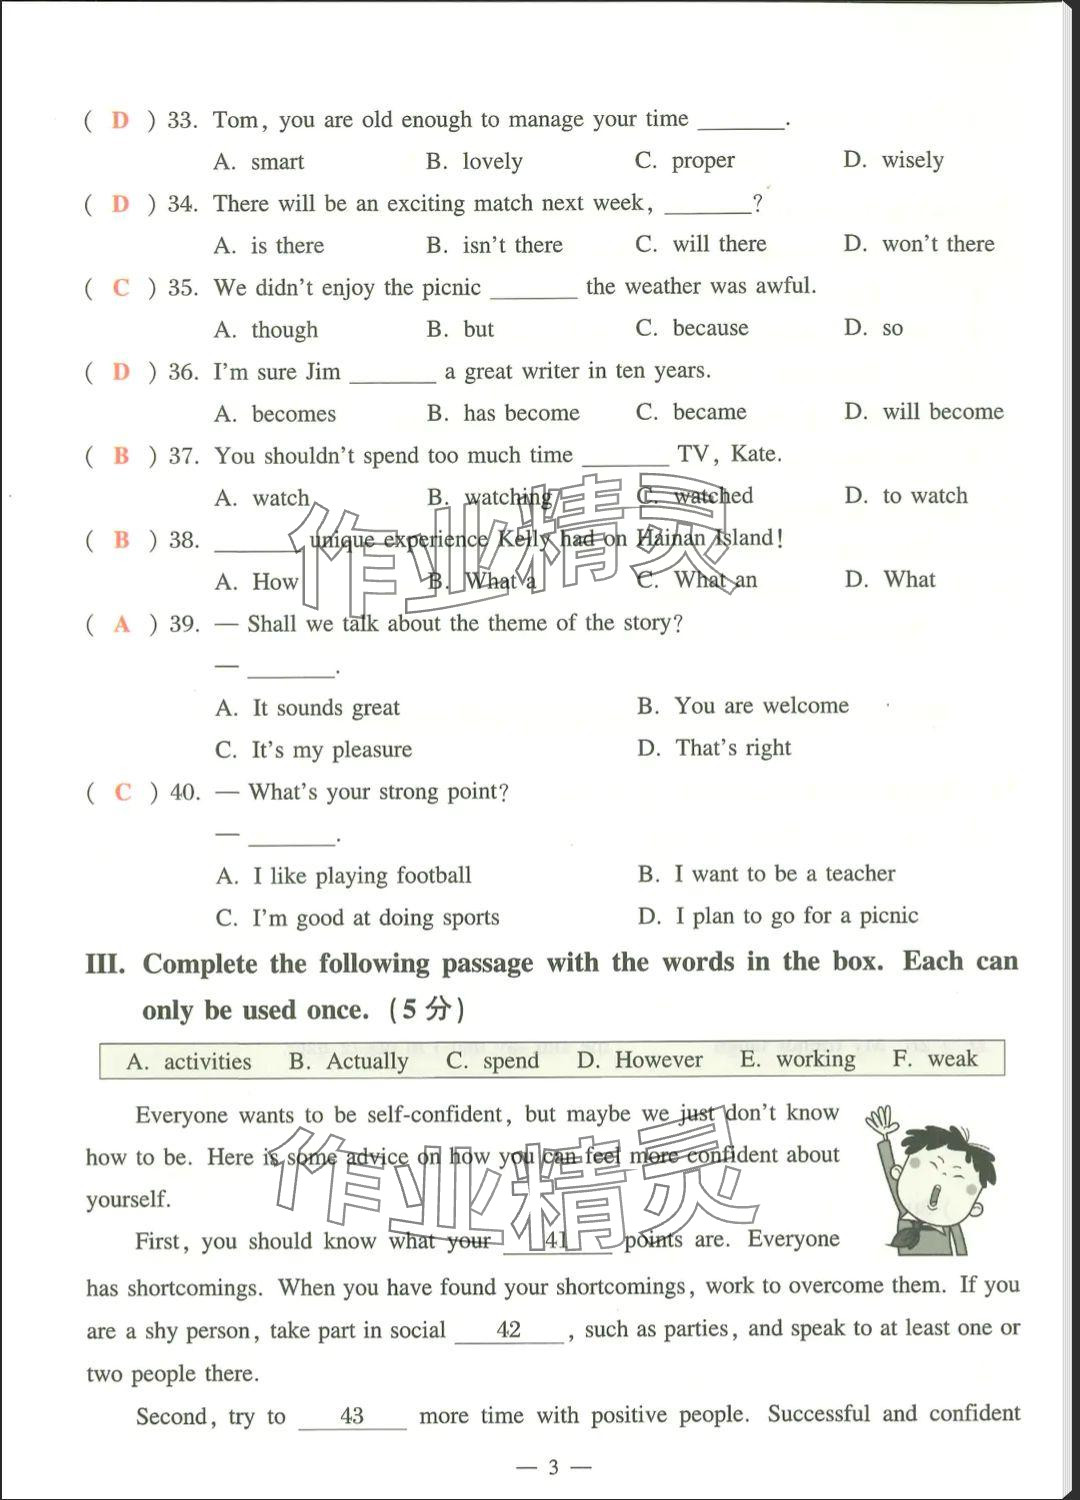 ( D ) 33. Tom, you are old enough to manage your time ________.
A. smart B. lovely C. proper D. wisely
( D ) 34. There will be an exciting match next week, ________?
A. is there B. isn't there C. will there D. won't there
( C ) 35. We didn't enjoy the picnic ________ the weather was awful.
A. though B. but C. because D. so
( D ) 36. I'm sure Jim ________ a great writer in ten years.
A. becomes B. has become C. became D. will become
( B ) 37. You shouldn't spend too much time ________ TV, Kate.
A. watch B. watching C. watched D. to watch
( B ) 38. ________ unique experience Kelly had on Hainan Island!
A. How B. What a C. What an D. What
作业精灵
( A ) 39. — Shall we talk about the theme of the story?
— ________.
A. It sounds great B. You are welcome
C. It's my pleasure D. That's right
( C ) 40. — What's your strong point?
— ________.
A. I like playing football B. I want to be a teacher
C. I'm good at doing sports D. I plan to go for a picnic
III. Complete the following passage with the words in the box. Each can
only be used once. (5 分)
A. activities B. Actually C. spend D. However E. working F. weak
Everyone wants to be self-confident, but maybe we just don't know
how to be. Here is some advice on how you can feel more confident about
yourself.
作业精灵
First, you should know what your 41 points are. Everyone
has shortcomings. When you have found your shortcomings, work to overcome them. If you
are a shy person, take part in social 42 , such as parties, and speak to at least one or
two people there.
Second, try to 43 more time with positive people. Successful and confident
— 3 —